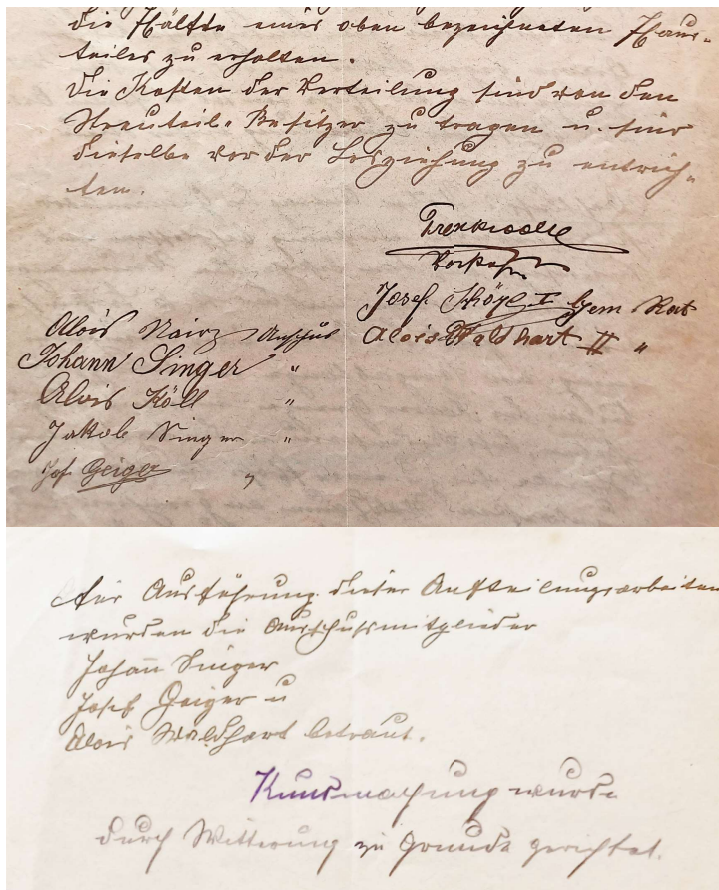 die Hälfte eines oben bezeichneten Haus-
teiles zu erhalten.
Die Kosten der Verteilung sind von den
Streuteil-Besitzer zu tragen u. sind
dieselbe vor der Losziehung zu entrich-
ten.
Vorsteher
Josef Köyl I Gem Rat
Alois Waldhart II "
Alois Nairz Ausschuß
Johann Singer "
Alois Köll "
Jakob Singer "
Jos. Geiger "
für Ausführung dieser Aufteilungsarbeiten
wurden die Ausschußmitglieder
Johann Singer
Josef Geiger u
Alois Waldhart betraut.
Kundmachung wurde
durch Witterung zu Grunde gerichtet.